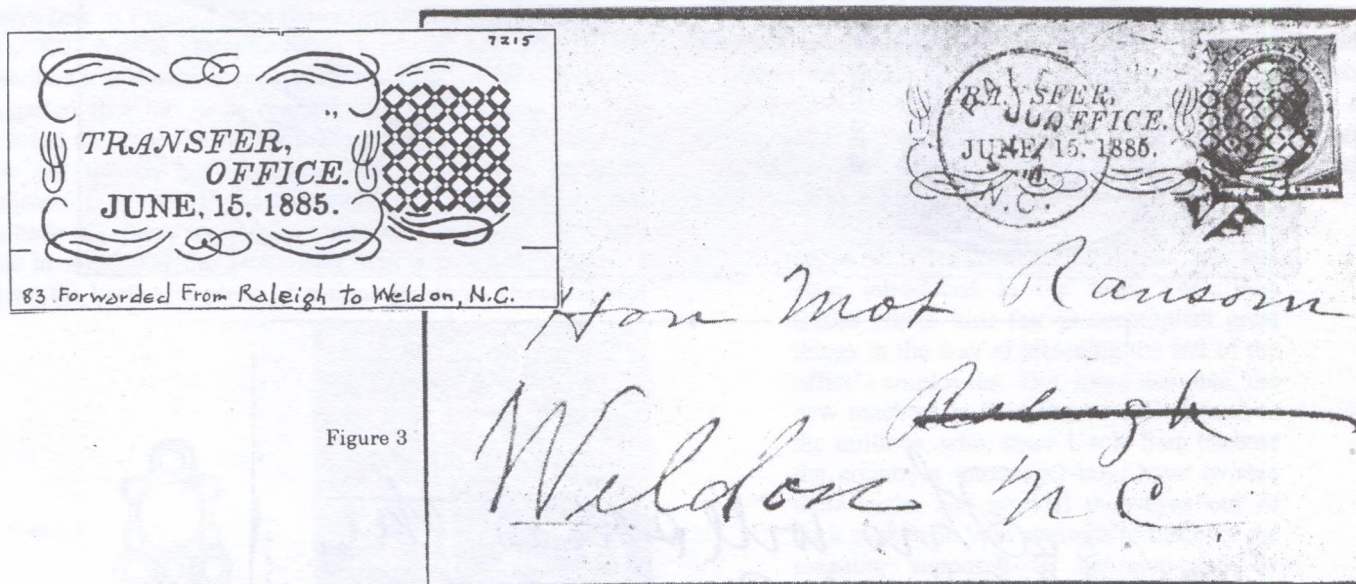 7215
TRANSFER,
OFFICE.
JUNE, 15. 1885.
83 Forwarded From Raleigh to Weldon, N.C.
TRANSFER,
OFFICE.
JUNE, 15. 1885.
N.C.
Hon Mat Ransom
Raleigh
Weldon NC
Figure 3